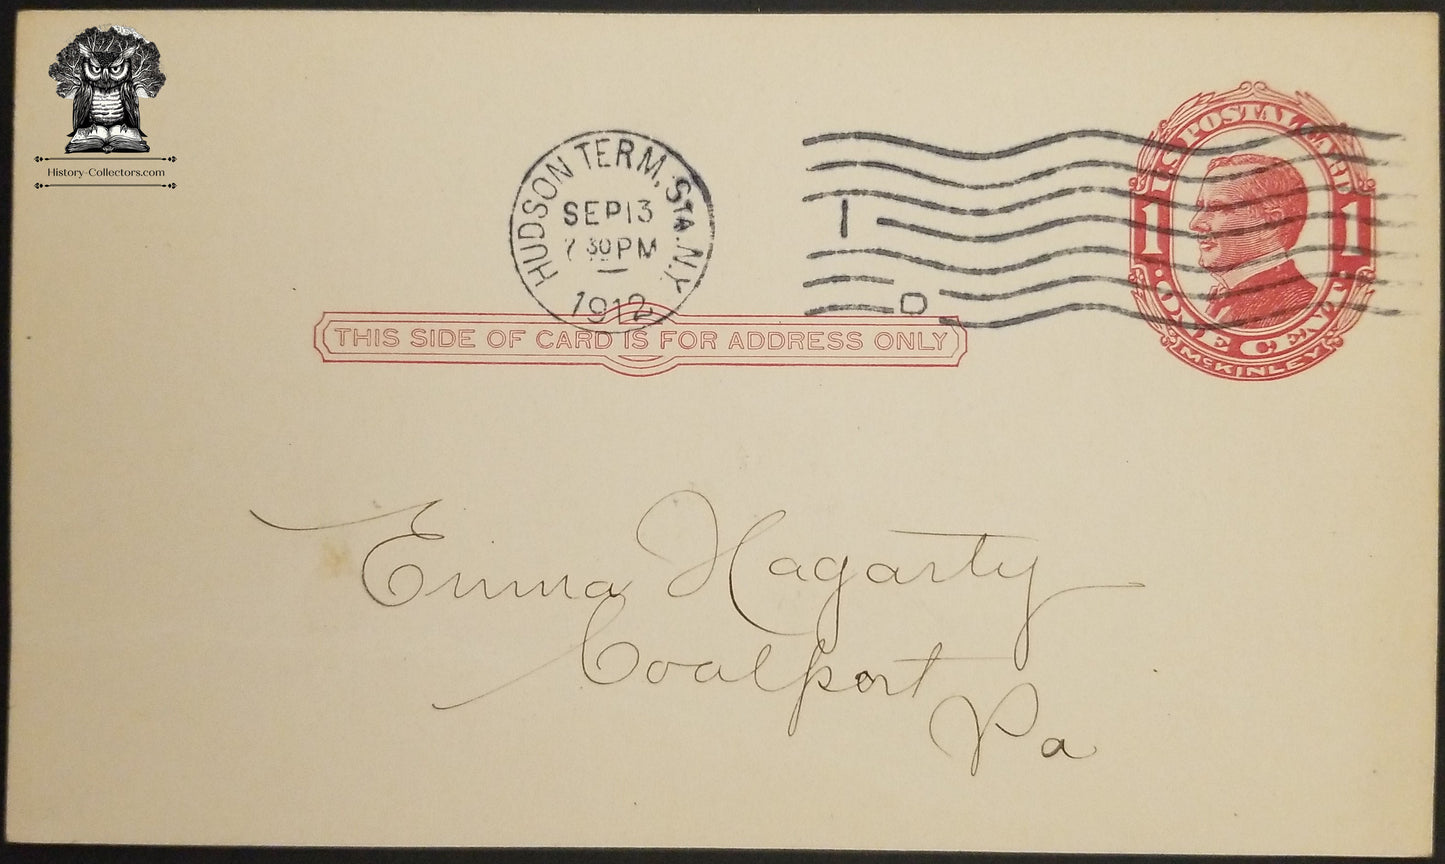 History-Collectors.com
HUDSON TERM. STA. N.Y.
SEP 13
7 30 PM
1912
1
D
U.S. POSTAL CARD
1 1
ONE CENT
McKINLEY
THIS SIDE OF CARD IS FOR ADDRESS ONLY
Emma Hagarty
Coalport
Pa